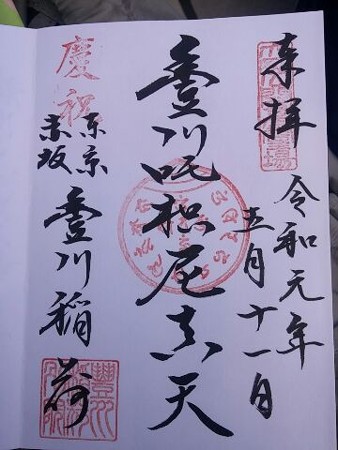 奉拝
令和元年
五月十一日
豊川吒枳尼真天
慶祝
東京
赤坂
豊川稲荷